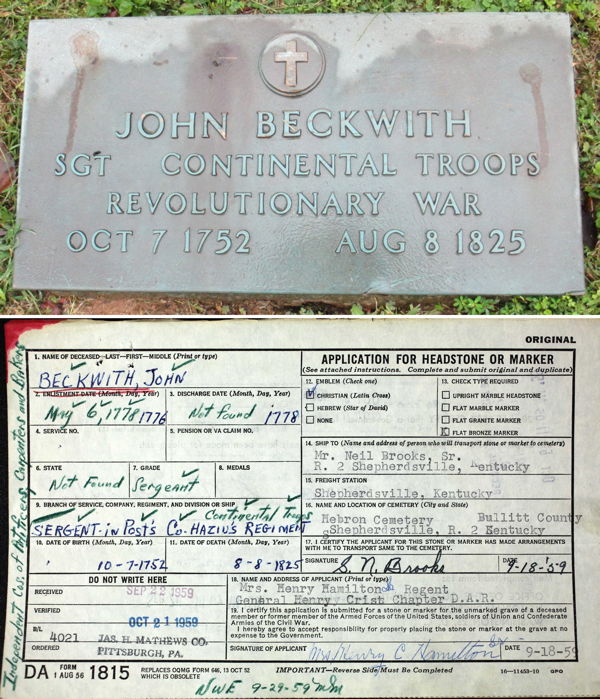 JOHN BECKWITH
SGT CONTINENTAL TROOPS
REVOLUTIONARY WAR
OCT 7 1752 AUG 8 1825
ORIGINAL
1. NAME OF DECEASED—LAST—FIRST—MIDDLE (Print or type)
BECKWITH, JOHN
2. ENLISTMENT DATE (Month, Day, Year)
May 6, 1778 1776
3. DISCHARGE DATE (Month, Day, Year)
Not found 1778
4. SERVICE NO.
5. PENSION OR VA CLAIM NO.
6. STATE
Not Found
7. GRADE
Sergeant
8. MEDALS
9. BRANCH OF SERVICE, COMPANY, REGIMENT, AND DIVISION OR SHIP
Continental Troops
SERGENT-IN POST'S CO-HAZIU'S REGIMENT
10. DATE OF BIRTH (Month, Day, Year)
10-7-1752
11. DATE OF DEATH (Month, Day, Year)
8-8-1825
DO NOT WRITE HERE
RECEIVED
SEP 22 1959
VERIFIED
OCT 21 1959
B/L
4021
JAS. H. MATHEWS CO.
PITTSBURGH, PA.
APPLICATION FOR HEADSTONE OR MARKER
(See attached instructions. Complete and submit original and duplicate)
12. EMBLEM (Check one)
CHRISTIAN (Latin Cross)
HEBREW (Star of David)
NONE
13. CHECK TYPE REQUIRED
UPRIGHT MARBLE HEADSTONE
FLAT MARBLE MARKER
FLAT GRANITE MARKER
FLAT BRONZE MARKER
14. SHIP TO (Name and address of person who will transport stone or marker to cemetery)
Mr. Neil Brooks, Sr.
R. 2 Shepherdsville, Kentucky
15. FREIGHT STATION
Shepherdsville, Kentucky
16. NAME AND LOCATION OF CEMETERY (City and State)
Hebron Cemetery Bullitt County
Shepherdsville, R. 2 Kentucky
17. I CERTIFY THE APPLICANT FOR THIS STONE OR MARKER HAS MADE ARRANGEMENTS
WITH ME TO TRANSPORT SAME TO THE CEMETERY.
SIGNATURE
S. N. Brooks
DATE
9-18-'59
18. NAME AND ADDRESS OF APPLICANT (Print or type)
Mrs. Henry Hamilton Regent
General Henry Crist Chapter D.A.R.
19. I certify this application is submitted for a stone or marker for the unmarked grave of a deceased
member or former member of the Armed Forces of the United States, soldiers of Union and Confederate
Armies of the Civil War.
I hereby agree to accept responsibility for properly placing the stone or marker at the grave at no
expense to the Government.
SIGNATURE OF APPLICANT
Mrs Henry C. Hamilton
DATE
9-18-59
DA FORM 1 AUG 56 1815
REPLACES OQMG FORM 646, 13 OCT 52
WHICH IS OBSOLETE
IMPORTANT—Reverse Side Must Be Completed
16—11453-10 GPO
NWE 9-29-59
Independent Cos. of Artificers, Carpenters and Bakers